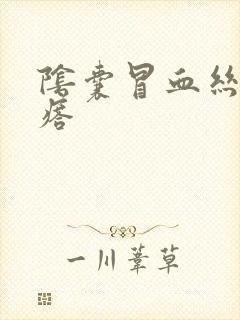 陰囊冒血絲
瘩
一川葦草